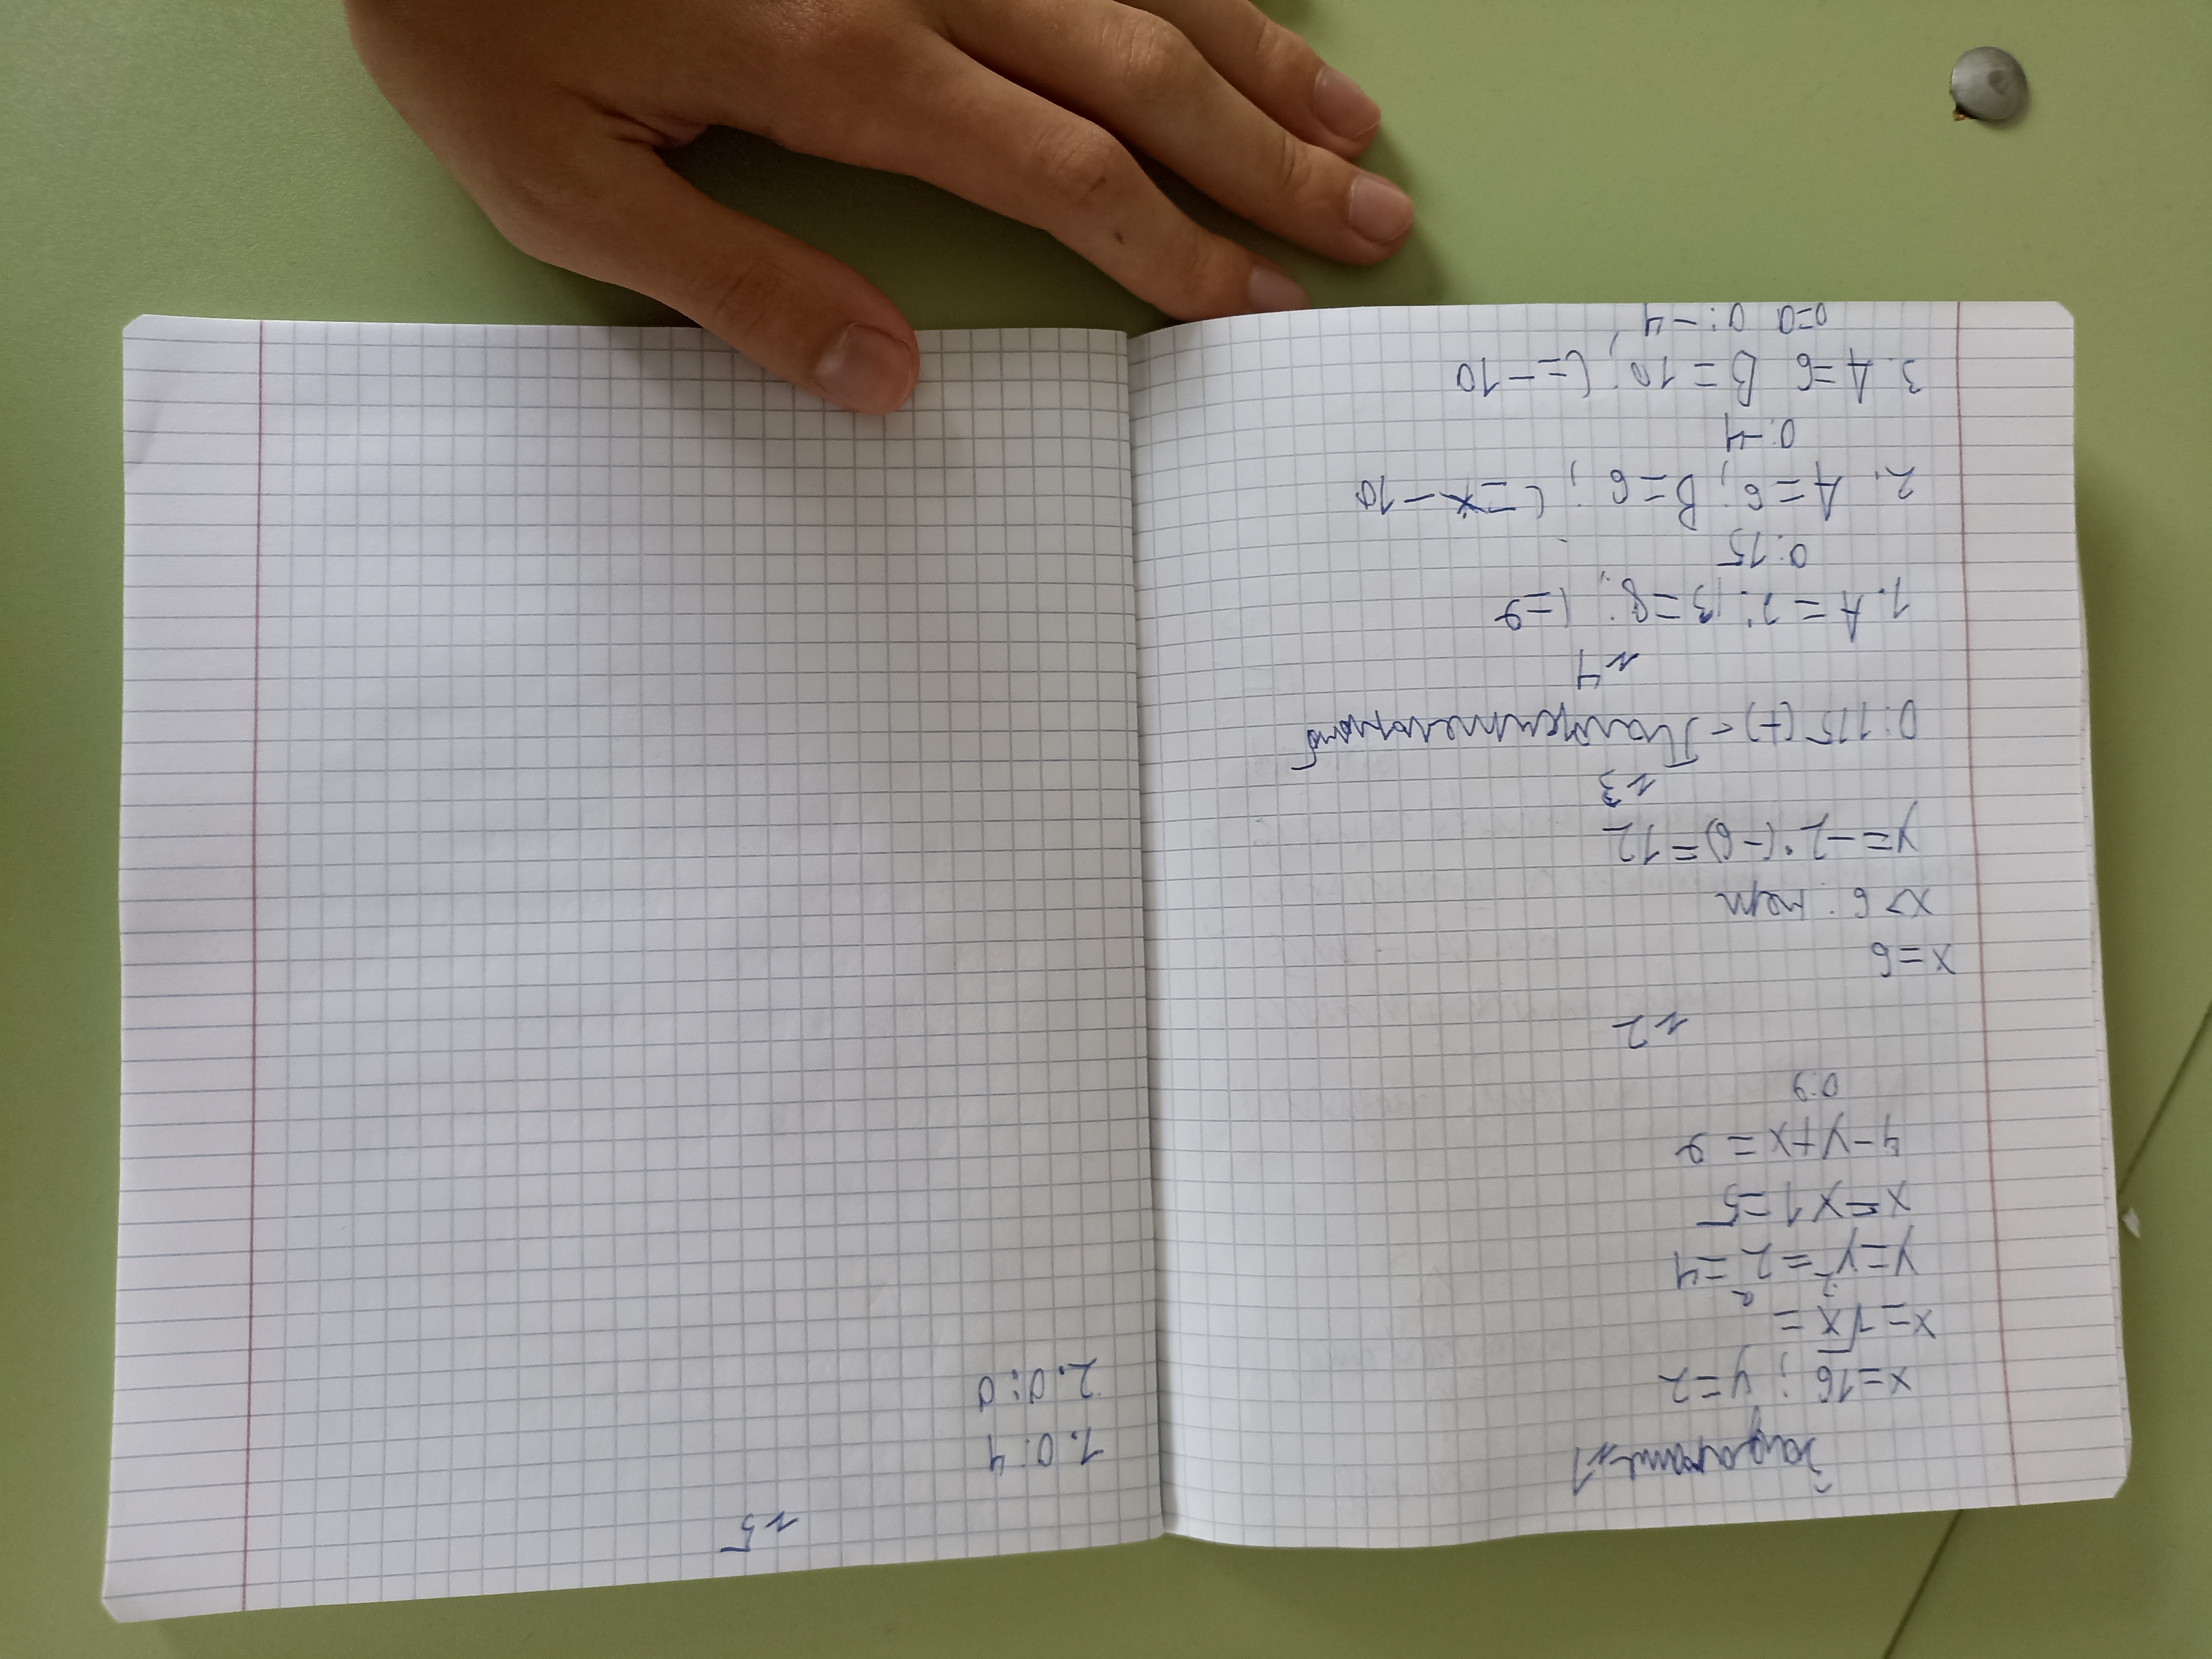 x=16 ; y=2
x=√x =
y=y²=2²=4
x=x1=5
4-y+x=9
0:9
№2
x=6
x>6: нет
y=-2·(-6)=12
№3
0:115(+)-
№4
1. A=2; B=8; C=9
0:15
2. A=6; B=6; C=-10
0:-4
3. A=6 B=10; C=-10
0=0 0:-4
№5
1. 0:4
2. 0:0